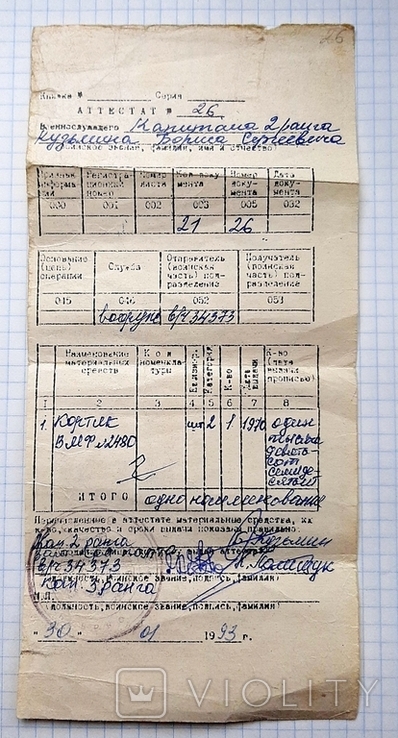 26
Книжка № Серия
АТТЕСТАТ № 26
Военнослужащего Капитана 2 ранга
Кузьмина Бориса Сергеевича
воинское звание, фамилия, имя и отчество)
Признак информации Регистрационный номер Номер листа Код документа Номер документа Дата документа
000 001 002 003 005 032
21 26
Основание (цель) операции Служба Отправитель (воинская часть) подразделение Получатель (воинская часть) подразделение
015 046 052 053
вооруж в/ч 34373
Наименование материальных средств Код номенклатуры Ед.измер. Категория К-во Дата выдачи К-во (дата выдачи прописью)
1 2 3 4 5 6 7 8
1. Кортик ВМФ №2480 шт 2 1 1970 один тысяча девятьсот семидесятый
ИТОГО одно наименование
Перечисленные в аттестате материальные средства, их
к-во, качество и сроки выдачи показаны правильно.
Кап. 2 ранга Кузьмин
В/Ч 34373
(должность, воинское звание, подпись, фамилия)
Кап. 3 ранга
М.П.
(должность, воинское звание, подпись, фамилия)
"30" 01 1993 г.
VIOLITY